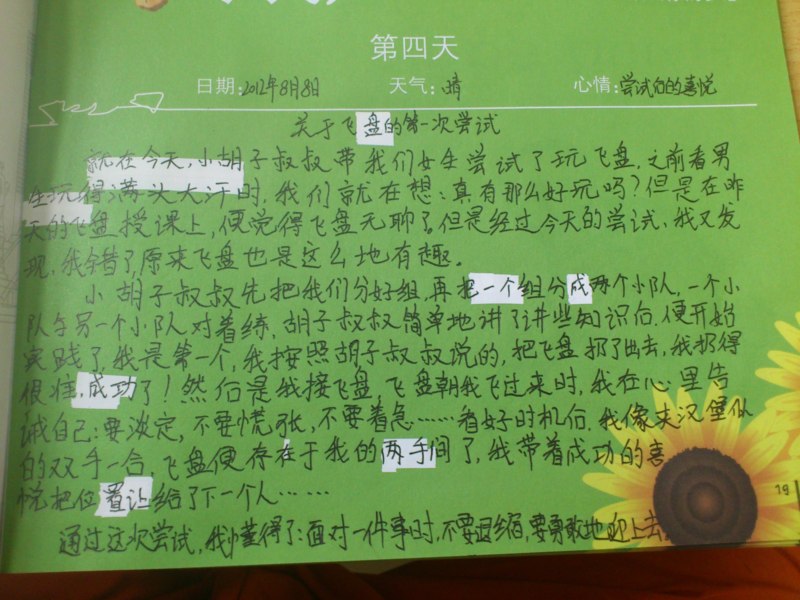 第四天
日期:2012年8月8日 天气:晴 心情:尝试后的喜悦
关于飞盘的第一次尝试
就在今天,小胡子叔叔带我们女生尝试了玩飞盘,之前看男
生玩得满头大汗时,我们就在想:真有那么好玩吗?但是在昨
天的飞盘授课上,便觉得飞盘无聊了。但是经过今天的尝试,我又发
现,我错了,原来飞盘也是这么地有趣。
小胡子叔叔先把我们分好组,再把一个组分成两个小队,一个小
队与另一个小队对着练,胡子叔叔简单地讲了讲些知识后,便开始
实践了,我是第一个,我按照胡子叔叔说的,把飞盘扔了出去,我扔得
很准,成功了!然后是我接飞盘,飞盘朝我飞过来时,我在心里告
诫自己:要淡定,不要慌张,不要着急……看好时机后,我像夹汉堡似
的双手一合,飞盘便存在于我的两手间了,我带着成功的喜
悦把位置让给了下一个人……
通过这次尝试,我懂得了:面对一件事时,不要退缩,要勇敢地迎上去。
19